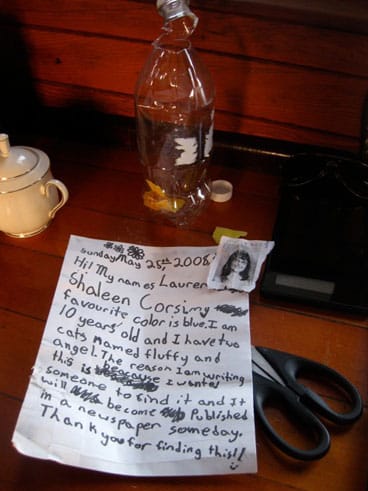 Sunday May 25th, 2008
Hi! My names Lauren
Shaleen my
favourite color is blue. I am
10 years old and I have two
cats named fluffy and
angel. The reason I am writing
this is because I wanted
someone to find it and It
will become Published
in a newspaper someday.
Thank you for finding this!!